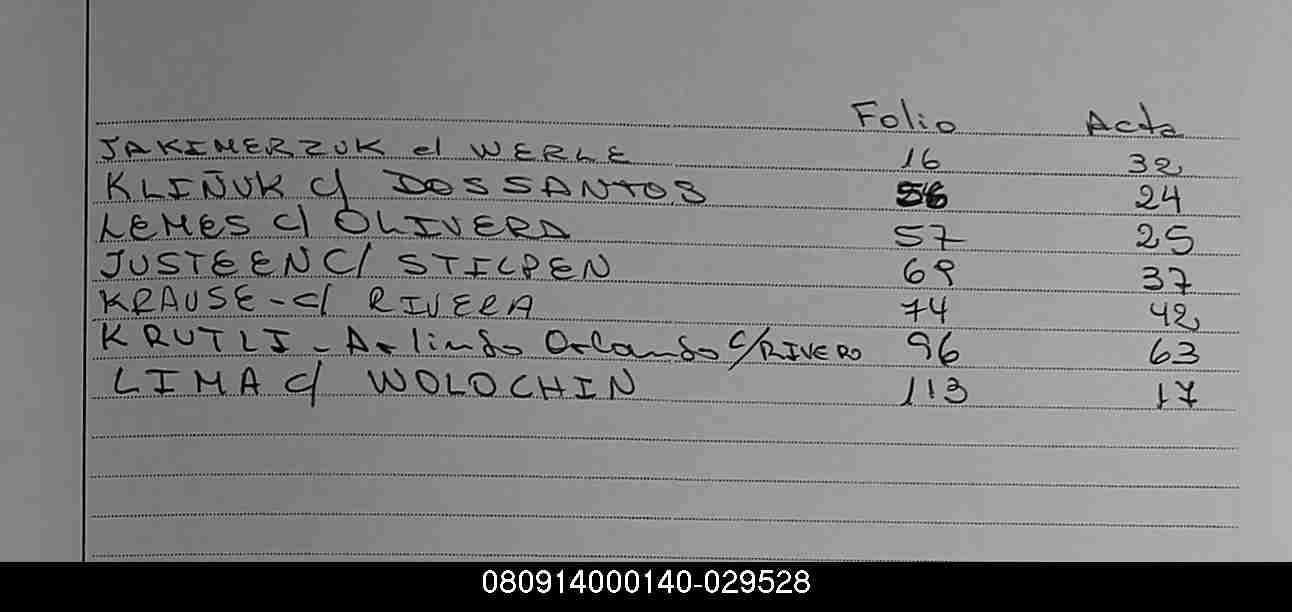 Folio Acta
JAKIMERZUK c/ WERLE 16 32
KLIÑUK c/ DOS SANTOS 56 24
LEMES c/ OLIVERA 57 25
JUSTEEN C/ STILPEN 69 37
KRAUSE - c/ RIVERA 74 42
KRUTLI - Arlindo Orlando c/ RIVERO 96 63
LIMA c/ WOLOCHIN 113 17
080914000140-029528